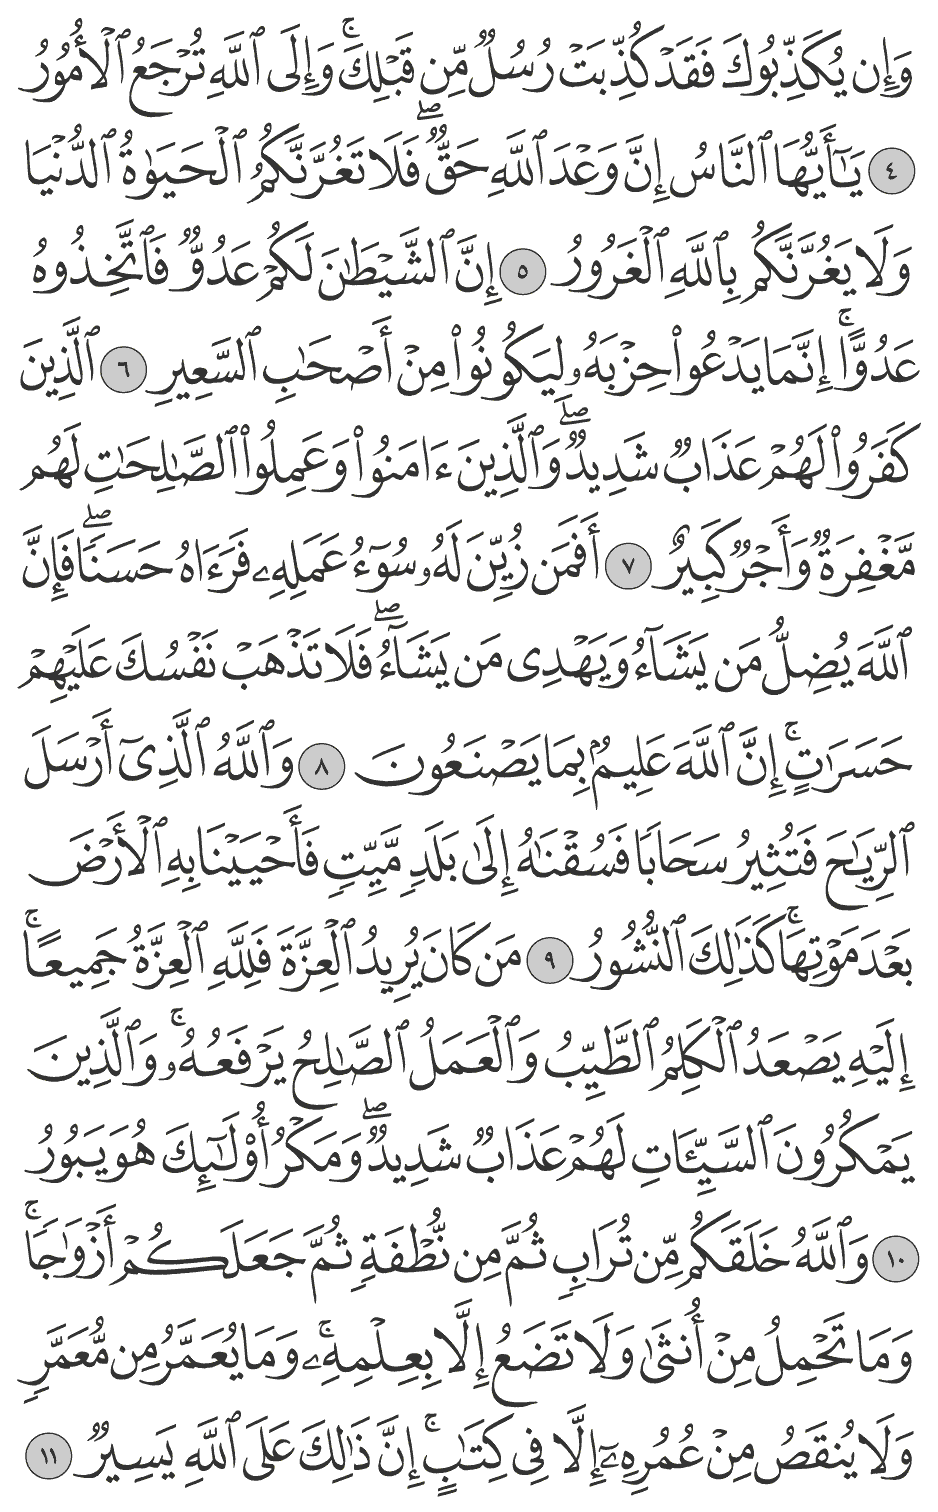 وَإِن يُكَذِّبُوكَ فَقَدۡ كُذِّبَتۡ رُسُلٞ مِّن قَبۡلِكَۚ وَإِلَى ٱللَّهِ تُرۡجَعُ ٱلۡأُمُورُ
٤ يَٰٓأَيُّهَا ٱلنَّاسُ إِنَّ وَعۡدَ ٱللَّهِ حَقّٞۖ فَلَا تَغُرَّنَّكُمُ ٱلۡحَيَوٰةُ ٱلدُّنۡيَا
وَلَا يَغُرَّنَّكُم بِٱللَّهِ ٱلۡغَرُورُ ٥ إِنَّ ٱلشَّيۡطَٰنَ لَكُمۡ عَدُوّٞ فَٱتَّخِذُوهُ
عَدُوًّاۚ إِنَّمَا يَدۡعُواْ حِزۡبَهُۥ لِيَكُونُواْ مِنۡ أَصۡحَٰبِ ٱلسَّعِيرِ ٦ ٱلَّذِينَ
كَفَرُواْ لَهُمۡ عَذَابٞ شَدِيدٞۖ وَٱلَّذِينَ ءَامَنُواْ وَعَمِلُواْ ٱلصَّٰلِحَٰتِ لَهُم
مَّغۡفِرَةٞ وَأَجۡرٞ كَبِيرٌ ٧ أَفَمَن زُيِّنَ لَهُۥ سُوٓءُ عَمَلِهِۦ فَرَءَاهُ حَسَنٗاۖ فَإِنَّ
ٱللَّهَ يُضِلُّ مَن يَشَآءُ وَيَهۡدِي مَن يَشَآءُۖ فَلَا تَذۡهَبۡ نَفۡسُكَ عَلَيۡهِمۡ
حَسَرَٰتٍۚ إِنَّ ٱللَّهَ عَلِيمُۢ بِمَا يَصۡنَعُونَ ٨ وَٱللَّهُ ٱلَّذِيٓ أَرۡسَلَ
ٱلرِّيَٰحَ فَتُثِيرُ سَحَابٗا فَسُقۡنَٰهُ إِلَىٰ بَلَدٖ مَّيِّتٖ فَأَحۡيَيۡنَا بِهِ ٱلۡأَرۡضَ
بَعۡدَ مَوۡتِهَاۚ كَذَٰلِكَ ٱلنُّشُورُ ٩ مَن كَانَ يُرِيدُ ٱلۡعِزَّةَ فَلِلَّهِ ٱلۡعِزَّةُ جَمِيعًاۚ
إِلَيۡهِ يَصۡعَدُ ٱلۡكَلِمُ ٱلطَّيِّبُ وَٱلۡعَمَلُ ٱلصَّٰلِحُ يَرۡفَعُهُۥۚ وَٱلَّذِينَ
يَمۡكُرُونَ ٱلسَّيِّـَٔاتِ لَهُمۡ عَذَابٞ شَدِيدٞۖ وَمَكۡرُ أُوْلَٰٓئِكَ هُوَ يَبُورُ
١٠ وَٱللَّهُ خَلَقَكُم مِّن تُرَابٖ ثُمَّ مِن نُّطۡفَةٖ ثُمَّ جَعَلَكُمۡ أَزۡوَٰجٗاۚ
وَمَا تَحۡمِلُ مِنۡ أُنثَىٰ وَلَا تَضَعُ إِلَّا بِعِلۡمِهِۦۚ وَمَا يُعَمَّرُ مِن مُّعَمَّرٖ
وَلَا يُنقَصُ مِنۡ عُمُرِهِۦٓ إِلَّا فِي كِتَٰبٍۚ إِنَّ ذَٰلِكَ عَلَى ٱللَّهِ يَسِيرٞ ١١